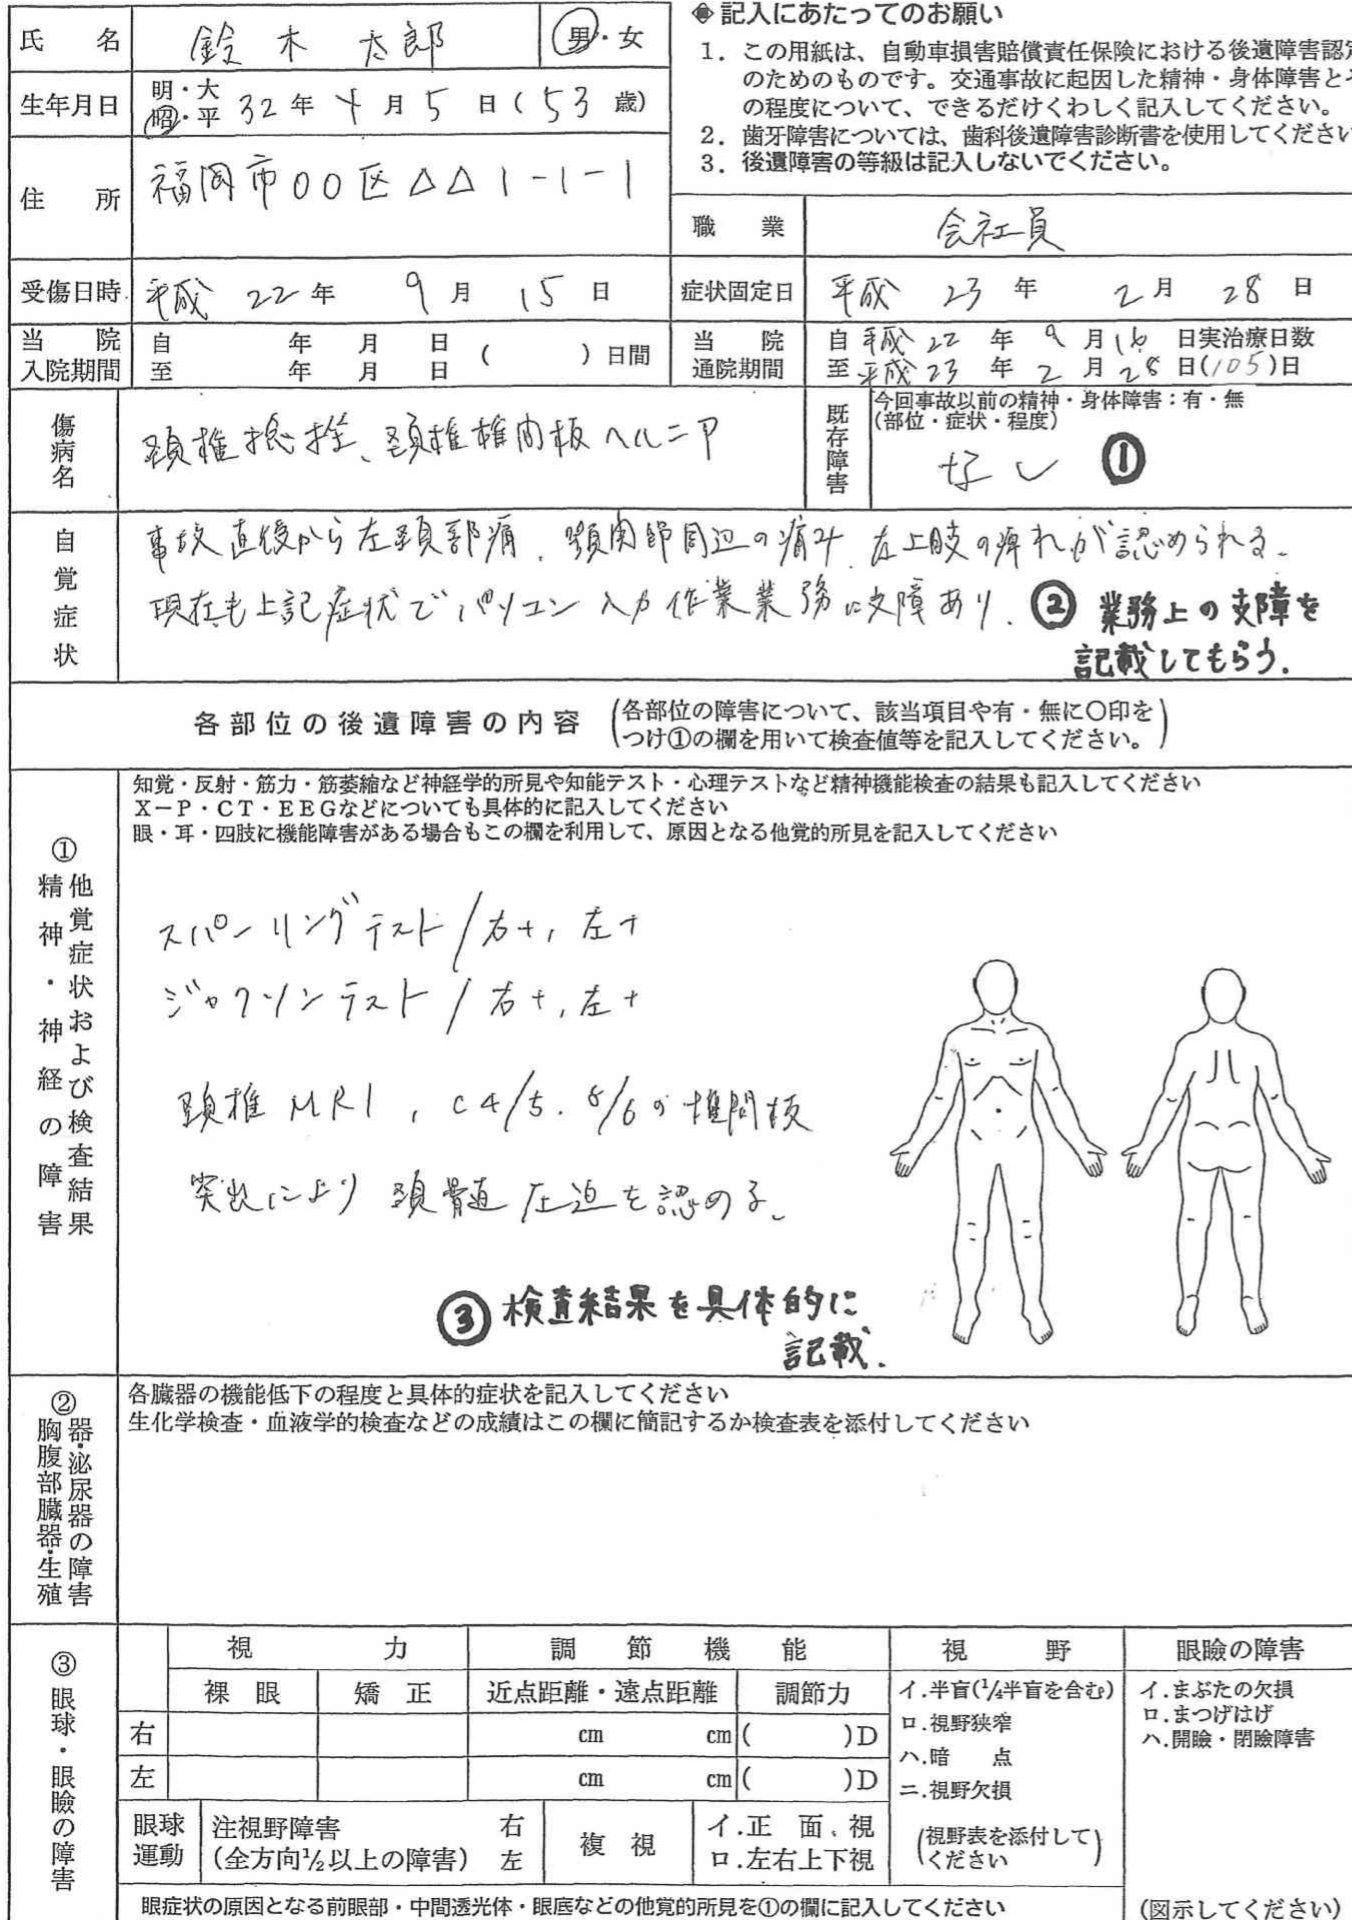 氏名 鈴木 太郎 男・女
生年月日 明・大 昭・平 32年 4月 5日(53歳)
住所 福岡市〇〇区△△1-1-1
◈ 記入にあたってのお願い
1. この用紙は、自動車損害賠償責任保険における後遺障害認定
のためのものです。交通事故に起因した精神・身体障害とそ
の程度について、できるだけくわしく記入してください。
2. 歯牙障害については、歯科後遺障害診断書を使用してください
3. 後遺障害の等級は記入しないでください。
職業 会社員
受傷日時 平成 22年 9月 15日
症状固定日 平成 23年 2月 28日
当院入院期間 自 年 月 日
至 年 月 日 ( )日間
当院通院期間 自 平成22年 9月16日 実治療日数
至 平成23年 2月28日(105)日
傷病名 頚椎捻挫、頚椎椎間板ヘルニア
既存障害 今回事故以前の精神・身体障害:有・無
(部位・症状・程度)
なし ①
自覚症状
事故直後から左頚部痛、顎関節周辺の痛み、左上肢の痺れが認められる。
現在も上記症状でパソコン入力作業業務に支障あり。 ② 業務上の支障を
記載してもらう.
各部位の後遺障害の内容 (各部位の障害について、該当項目や有・無に〇印を
つけ①の欄を用いて検査値等を記入してください。)
① 精神・神経の障害 他覚症状および検査結果
知覚・反射・筋力・筋萎縮など神経学的所見や知能テスト・心理テストなど精神機能検査の結果も記入してください
X-P・CT・EEGなどについても具体的に記入してください
眼・耳・四肢に機能障害がある場合もこの欄を利用して、原因となる他覚的所見を記入してください
スパーリングテスト/右+, 左+
ジャクソンテスト/右+, 左+
頚椎MRI, C4/5. 5/6の椎間板
突出により 頚髄圧迫を認める。
③ 検査結果を具体的に
記載.
② 胸腹部臓器・生殖器・泌尿器の障害
各臓器の機能低下の程度と具体的症状を記入してください
生化学検査・血液学的検査などの成績はこの欄に簡記するか検査表を添付してください
③ 眼球・眼瞼の障害
視力 調節機能 視野 眼瞼の障害
裸眼 矯正 近点距離・遠点距離 調節力
右 cm cm ( )D
左 cm cm ( )D
イ.半盲(¼半盲を含む)
ロ.視野狭窄
ハ.暗点
ニ.視野欠損
(視野表を添付して
ください)
イ.まぶたの欠損
ロ.まつげはげ
ハ.開瞼・閉瞼障害
眼球運動 注視野障害 右
(全方向½以上の障害) 左
複視 イ.正面視
ロ.左右上下視
眼症状の原因となる前眼部・中間透光体・眼底などの他覚的所見を①の欄に記入してください
(図示してください)